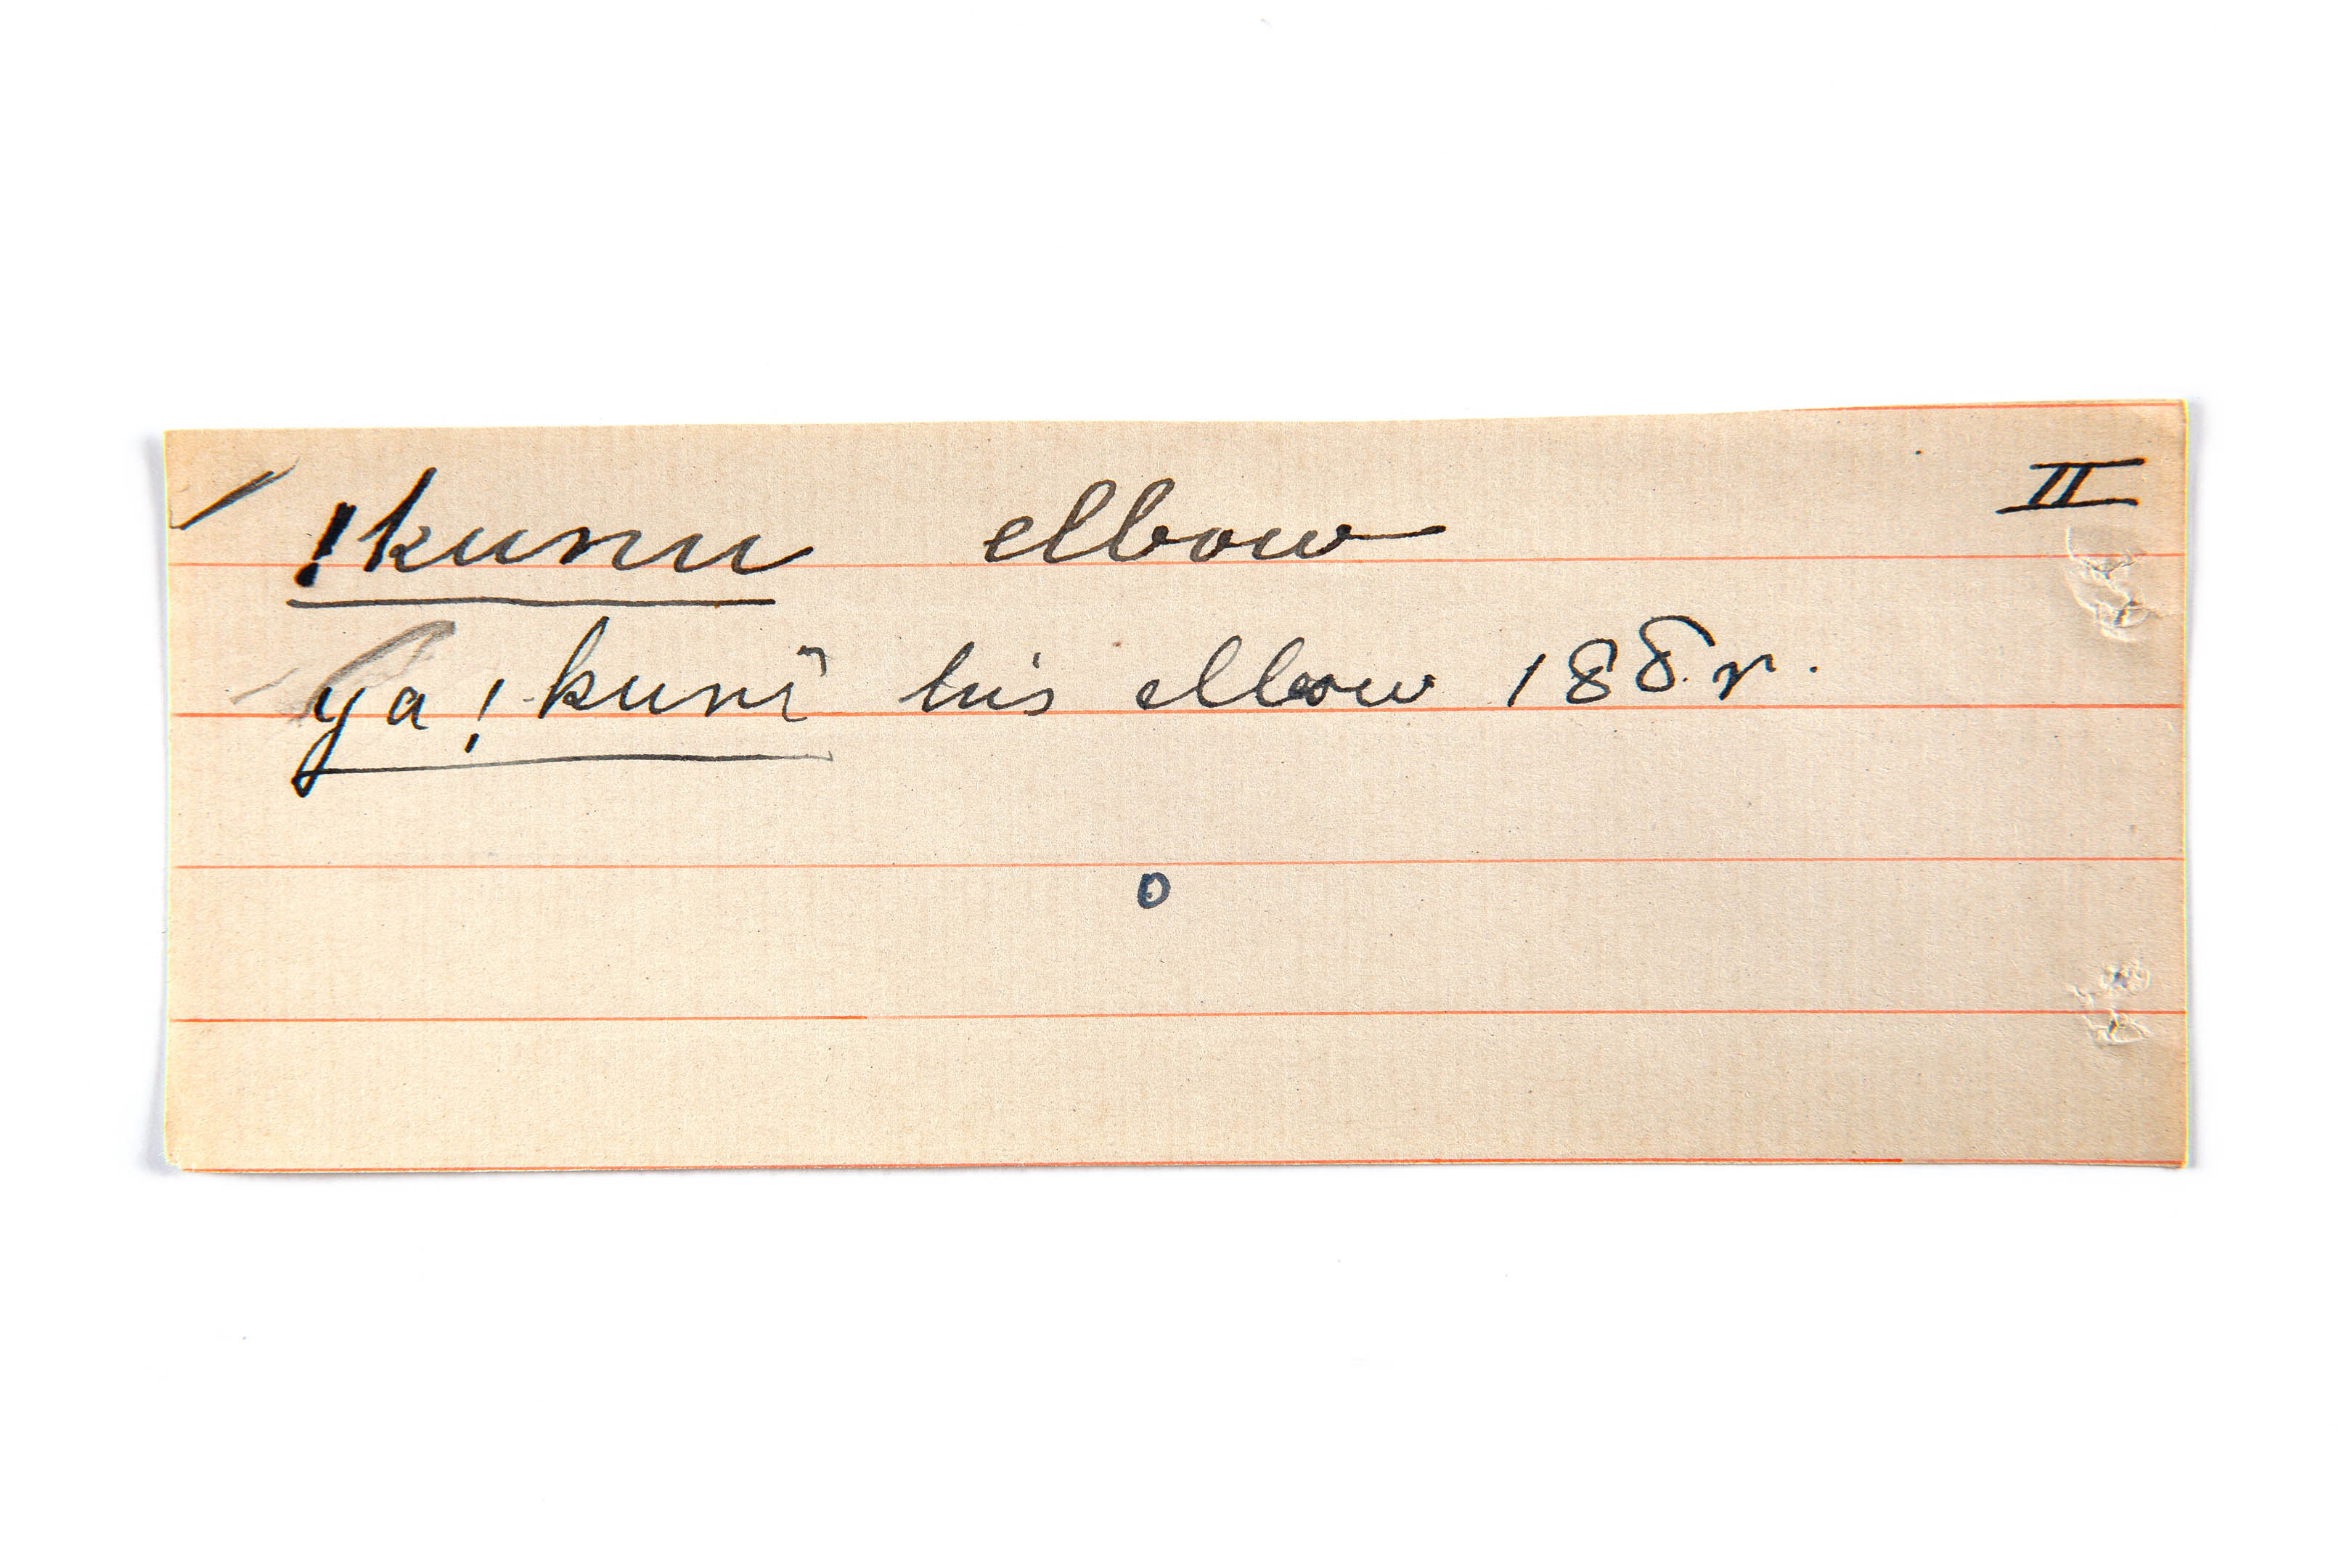 !kunu elbow II
ya !kuni his elbow 188 r.
o